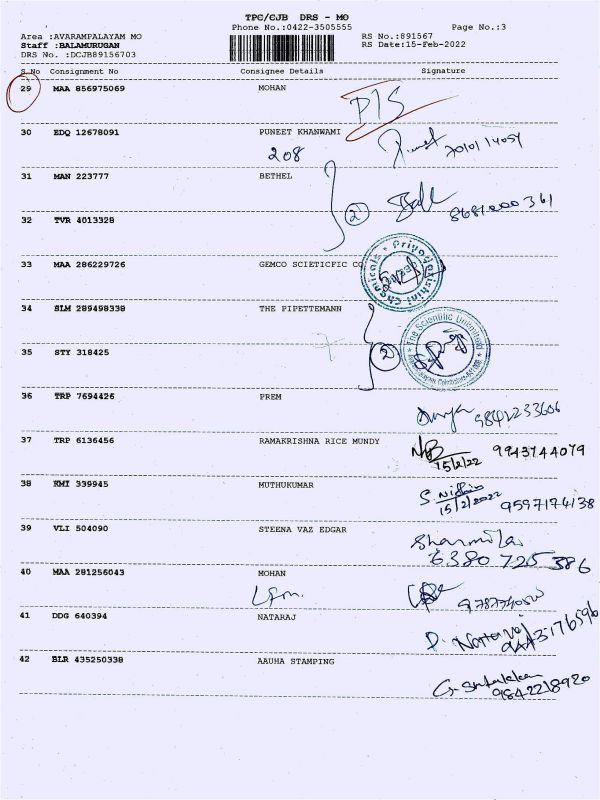 TPC/CJB DRS - MO
Phone No.:0422-3505555 Page No.:3
Area :AVARAMPALAYAM MO RS No.:891567
Staff :BALAMURUGAN RS Date:15-Feb-2022
DRS No. :DCJB89156703
S.No Consignment No Consignee Details Signature
29 MAA 856975069 MOHAN
30 EDQ 12678091 PUNEET KHANWAMI
208
31 MAN 223777 BETHEL
2
32 TVR 4013328
33 MAA 286229726 GEMCO SCIETICFIC CO
Priyadarishini Chemicals
34 SLM 289498338 THE PIPETTEMANN
The Scientific
2
35 STY 318425
36 TRP 7694426 PREM
9841233606
37 TRP 6136456 RAMAKRISHNA RICE MUNDY
15/2/22 9943744079
38 KMI 339945 MUTHUKUMAR
15/2/2022 9597174138
39 VLI 504090 STEENA VAZ EDGAR
Sharmila
6380 725 386
40 MAA 281256043 MOHAN
41 DDG 640394 NATARAJ
P. Nataraj
42 BLR 435250338 AAUHA STAMPING
9842218920